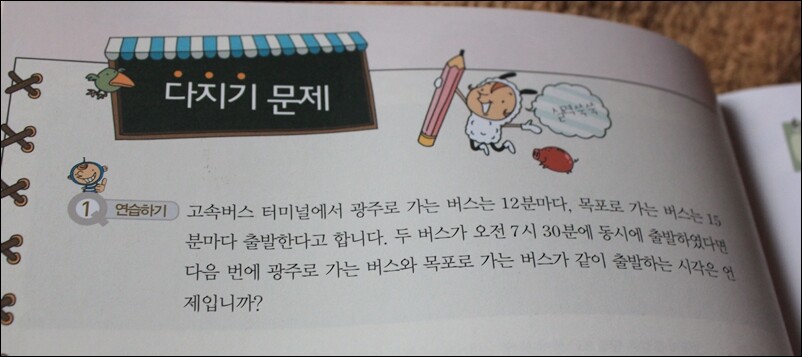 다지기 문제
실력쑥쑥
1 연습하기 고속버스 터미널에서 광주로 가는 버스는 12분마다, 목포로 가는 버스는 15
분마다 출발한다고 합니다. 두 버스가 오전 7시 30분에 동시에 출발하였다면
다음 번에 광주로 가는 버스와 목포로 가는 버스가 같이 출발하는 시각은 언
제입니까?